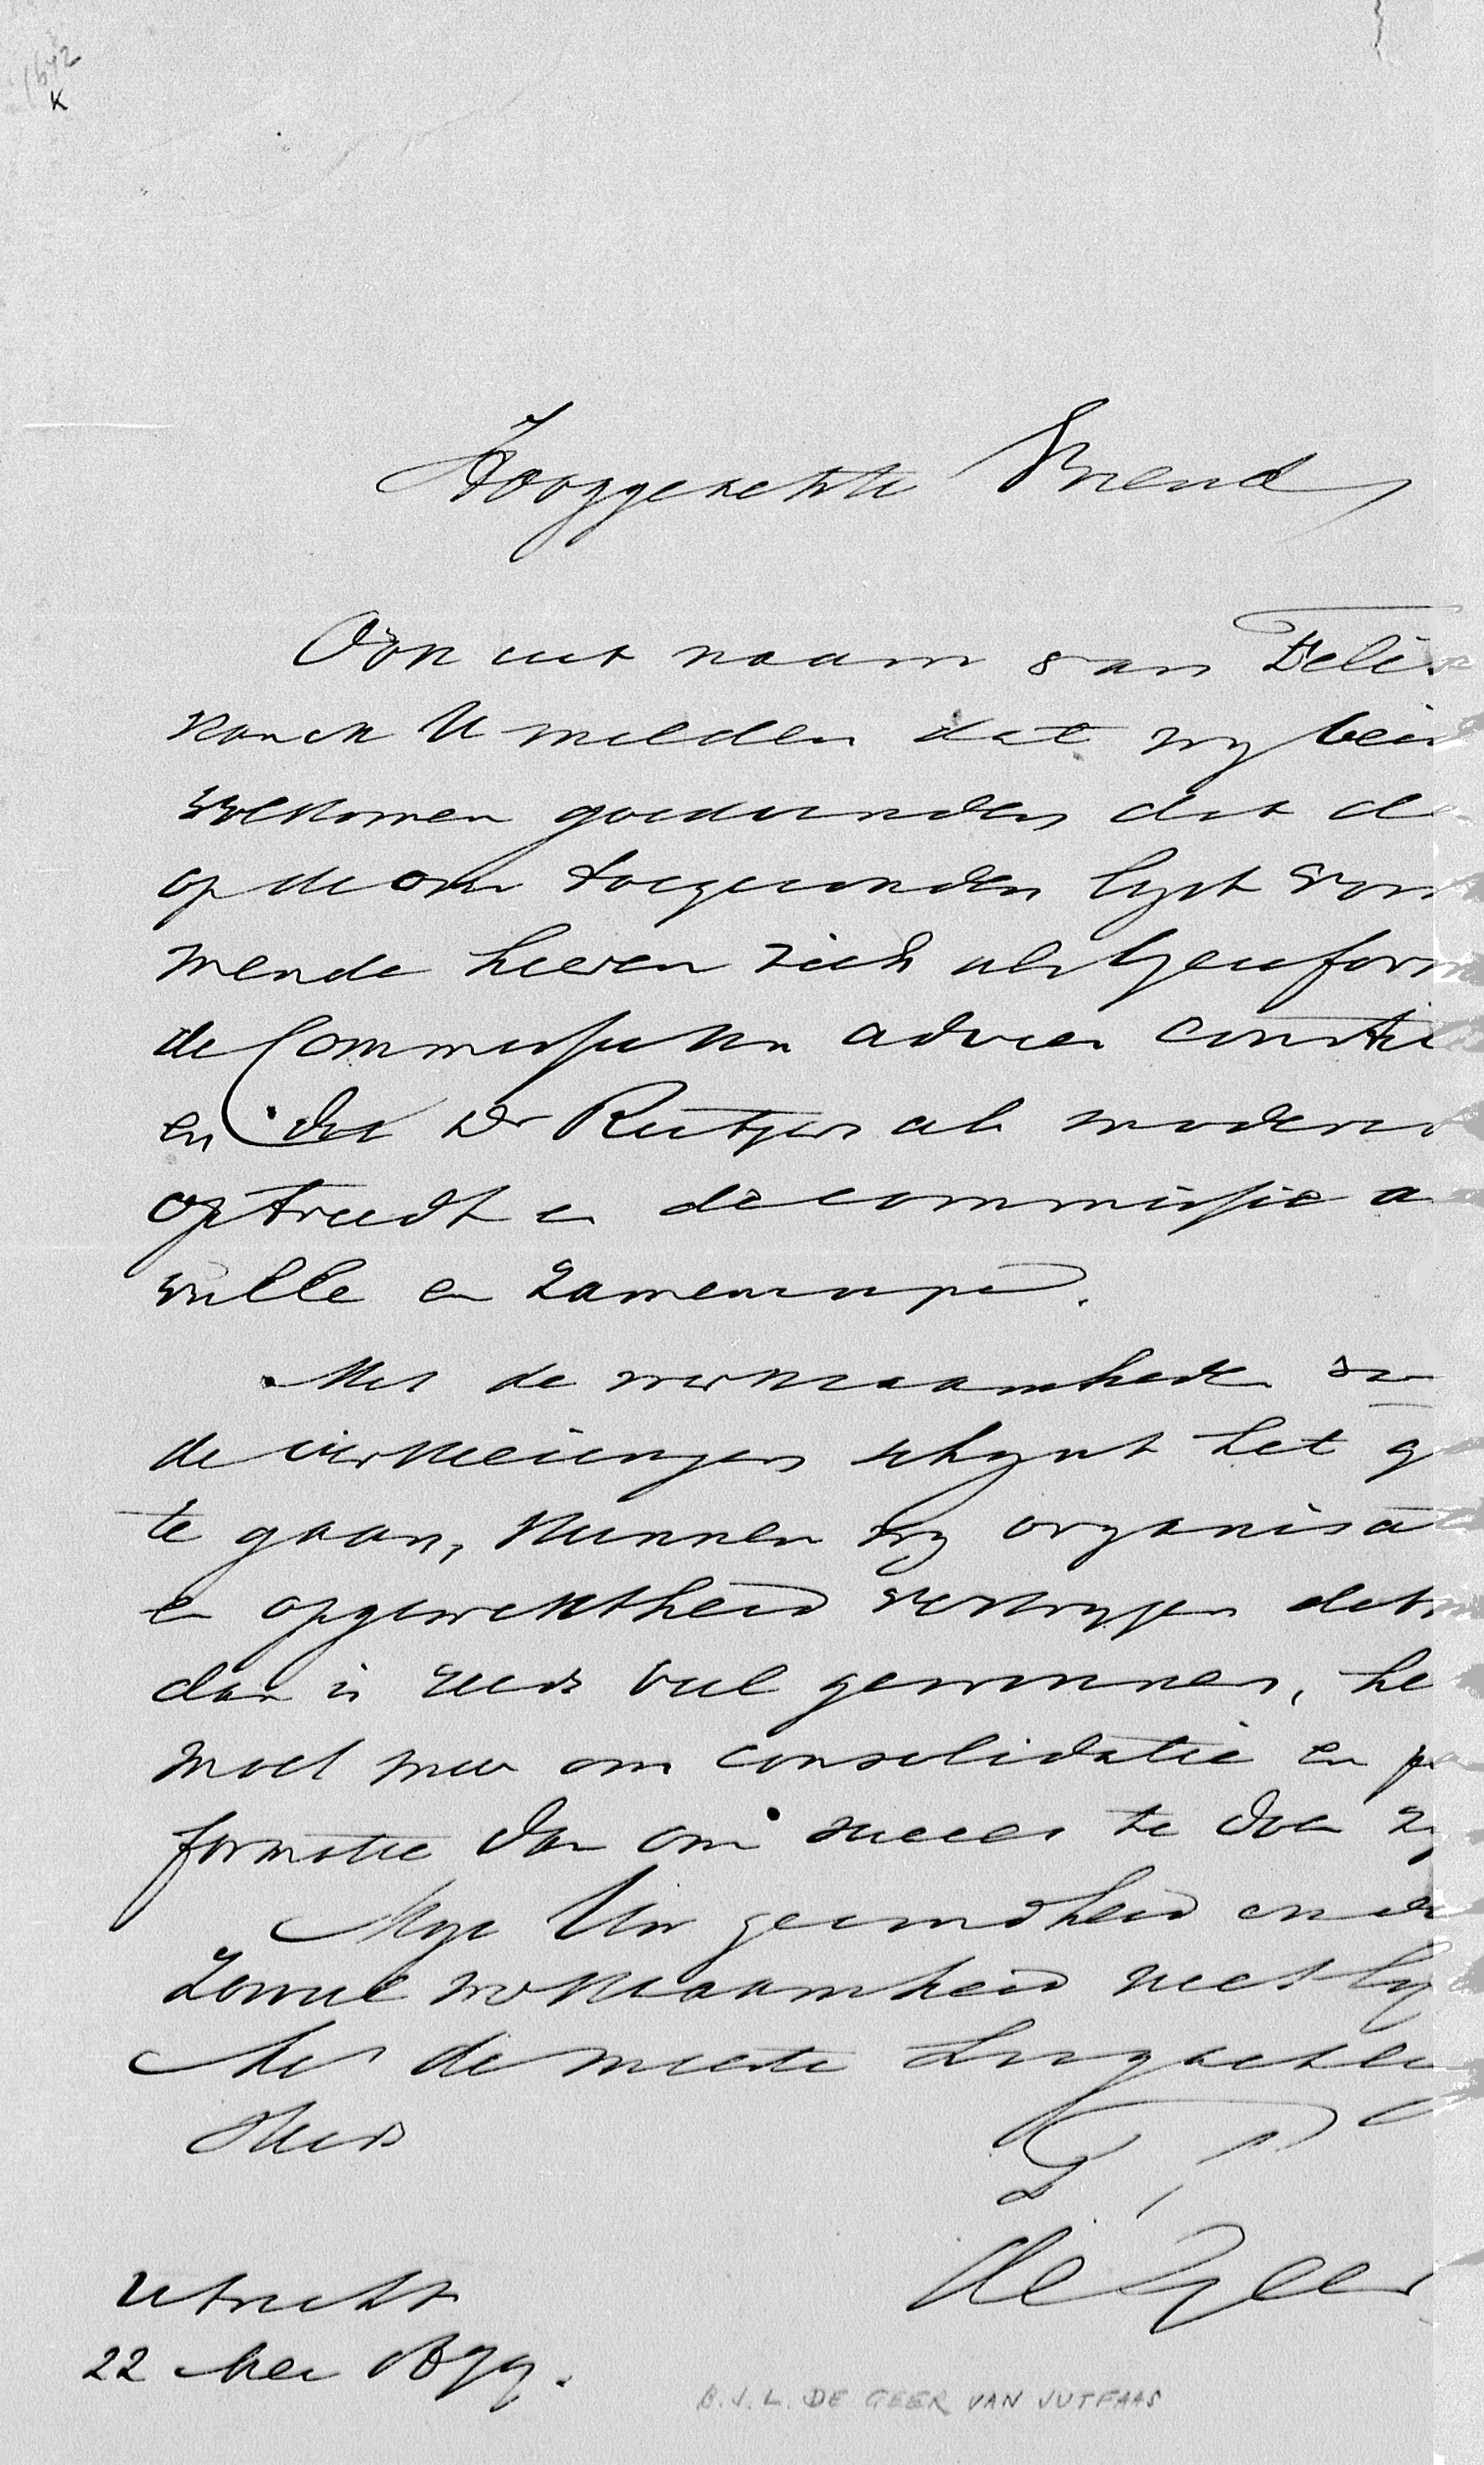 1642
K
Hooggeachte Vriend
Ook uit naam van Felix
kan ik U melden dat wy beid
volkomen goedvinden dat de
op de ons toegezonden lyst voor
mende heeren zich als geïnform
de Commissie van advies constitu
en dat Dr Rutgers als moderat
optreedt en de commissie a
vulle en zamenroepe.
Met de werkzaamheden
de verkiezingen schynt het g
te gaan, kunnen wy organisa
en opgewektheid verkrygen
dan is reeds veel gewonnen, he
moet meer om consolidatie en
formatie dan om succes te doen zy
Moge Uw gezondheid onder
zooveel werkzaamheid niet ly
Met de meeste hoogachting
Steeds
De Geer
Utrecht
22 Mei 1879.
B.J.L. DE GEER VAN JUTFAAS